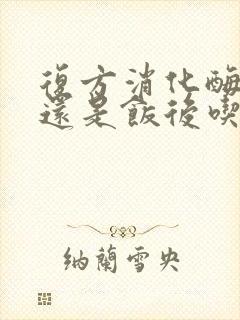 復方消化酶
還是飯後喫
納蘭雪央